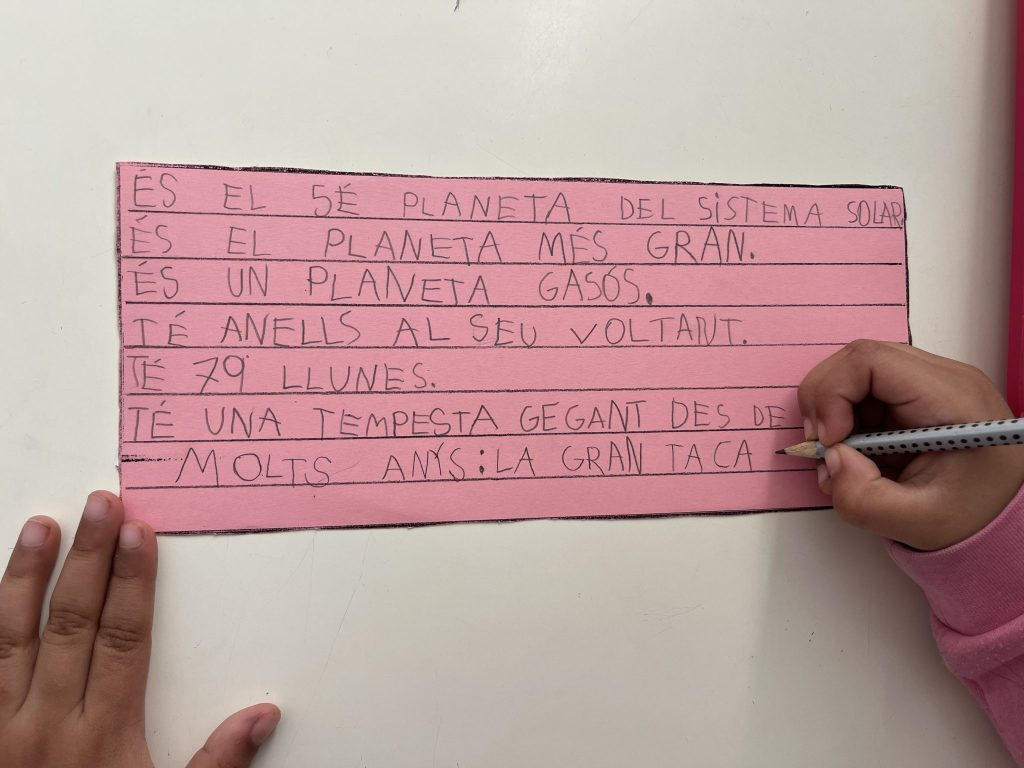 ÉS EL 5É PLANETA DEL SiSTEMA SOLAR
ÉS EL PLANETA MÉS GRAN.
ÉS UN PLANETA GASÓS.
TÉ ANELLS AL SEU VOLTANT.
TÉ 79 LLUNES.
TÉ UNA TEMPESTA GEGANT DES DE
MOLTS ANYS: LA GRAN TACA